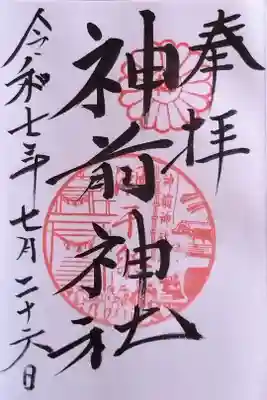 奉拝
神前神社
令和七年七月二十六日
神前神社